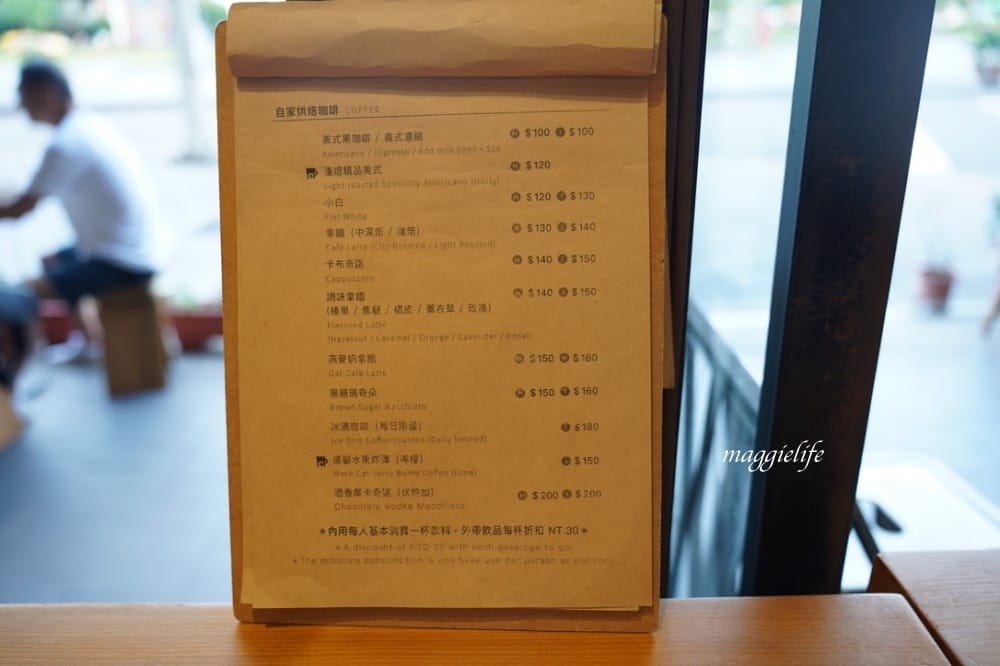 自家烘焙咖啡 COFFEE
美式黑咖啡 / 義式濃縮 H $100 I $100
Americano / Espresso / Add milk 50ml + $20
淺焙精品美式 H $120
Light roasted Specialty Americano (fruity)
小白 H $120 I $130
Flat White
拿鐵 (中深焙 / 淺焙) H $130 I $140
Cafe Latte (City Roasted / Light Roasted)
卡布奇諾 H $140 I $150
Cappuccino
調味拿鐵 H $140 I $150
(榛果 / 焦糖 / 橘皮 / 薰衣草 / 玫瑰)
Flavored Latte
(Hazelnut / Caramel / Orange / Lavender / Rose)
燕麥奶拿鐵 H $150 I $160
Oat Cafe Latte
黑糖瑪奇朵 H $150 I $160
Brown Sugar Macchiato
冰滴咖啡 (每日限量) I $180
Ice Drip Coffee roasted (Daily limited)
水果炸彈 (檸檬) I $150
Mask Cat Juice Bomb Coffee (Lime)
酒香摩卡奇諾 (伏特加) H $200 I $200
Chocolate Vodka Macchiato
*內用每人基本消費一杯飲料,外帶飲品每杯折扣 NT.30*
*A discount of NTD 30 with each beverage to go.
*The minimum consumption is one beverage per person at our shop
maggielife